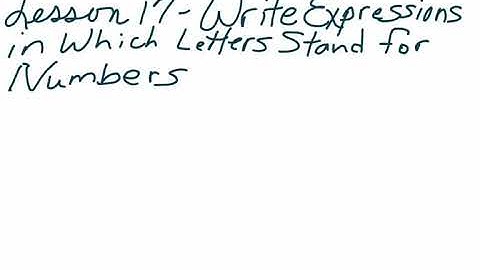 Lesson 17 - Write Expressions
in Which Letters Stand for
Numbers